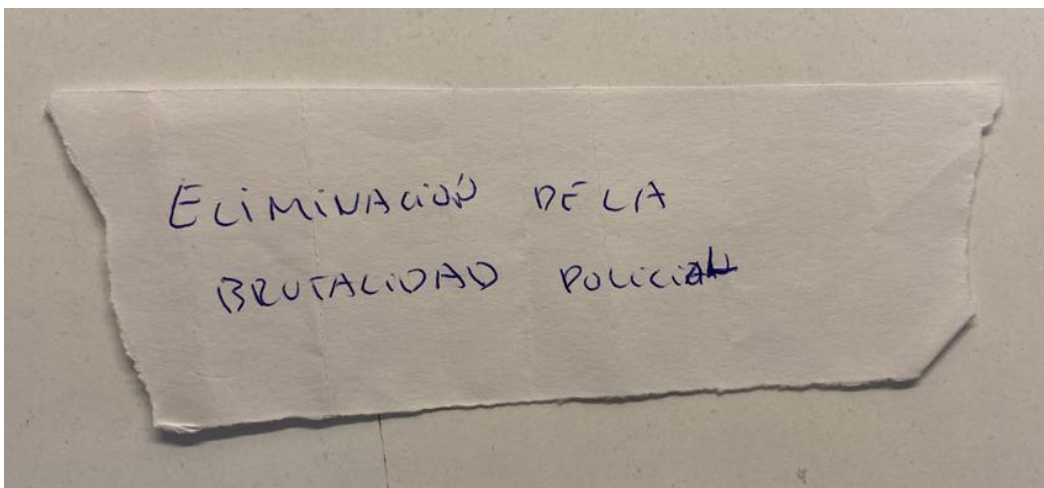 ELIMINACIÓN DE LA
BRUTALIDAD POLICIAL